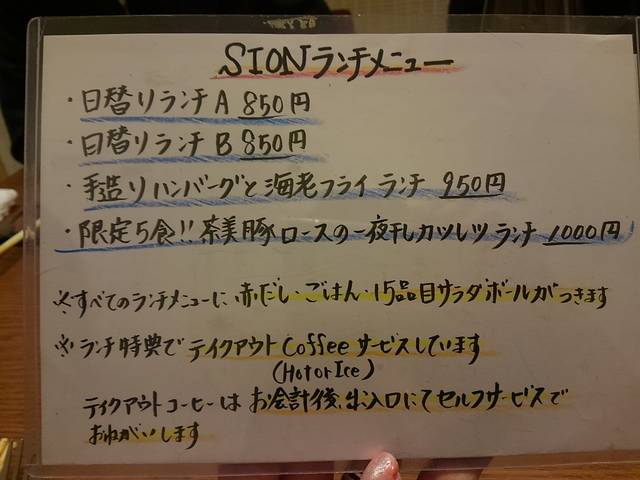 SIONランチメニュー
・日替りランチA 850円
・日替りランチB 850円
・手造りハンバーグと海老フライランチ 950円
・限定5食!!茶美豚ロースの一夜干しカツレツランチ 1000円
※すべてのランチメニューに赤だし・ごはん・15品目サラダボールがつきます
※ランチ特典でテイクアウトCoffeeサービスしています
(HotorIce)
テイクアウトコーヒーはお会計後、出入口にてセルフサービスで
おねがいします